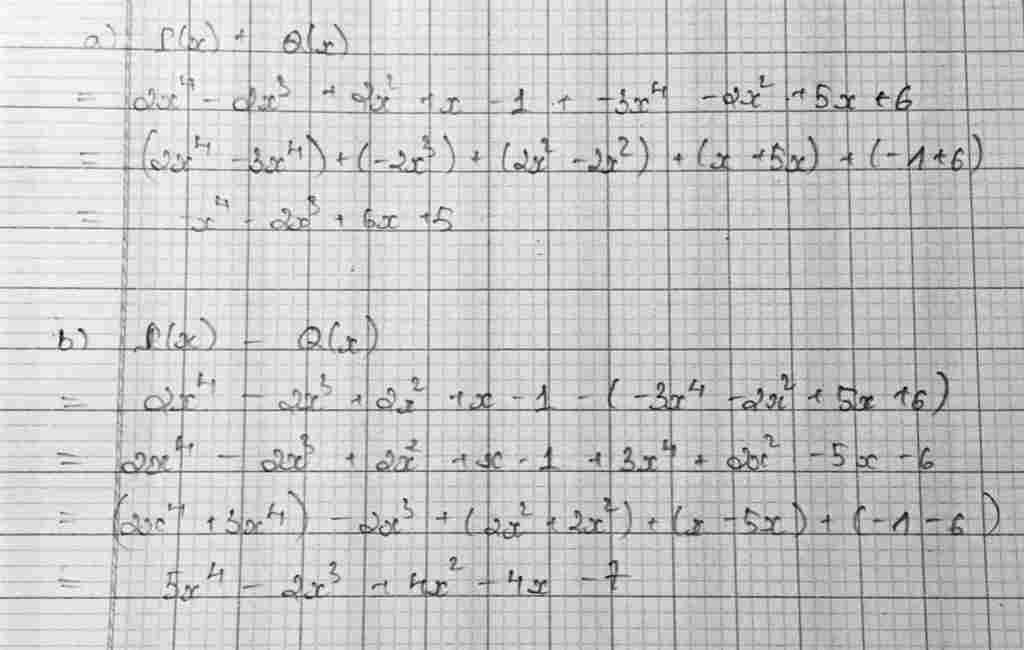 a) P(x) + Q(x)
= 2x⁴ - 2x³ + 2x² + x - 1 + -3x⁴ - 2x² + 5x + 6
= (2x⁴ - 3x⁴) + (-2x³) + (2x² - 2x²) + (x + 5x) + (-1 + 6)
= -x⁴ - 2x³ + 6x + 5
b) P(x) - Q(x)
= 2x⁴ - 2x³ + 2x² + x - 1 - (-3x⁴ - 2x² + 5x + 6)
= 2x⁴ - 2x³ + 2x² + x - 1 + 3x⁴ + 2x² - 5x - 6
= (2x⁴ + 3x⁴) - 2x³ + (2x² + 2x²) + (x - 5x) + (-1 - 6)
= 5x⁴ - 2x³ + 4x² - 4x - 7